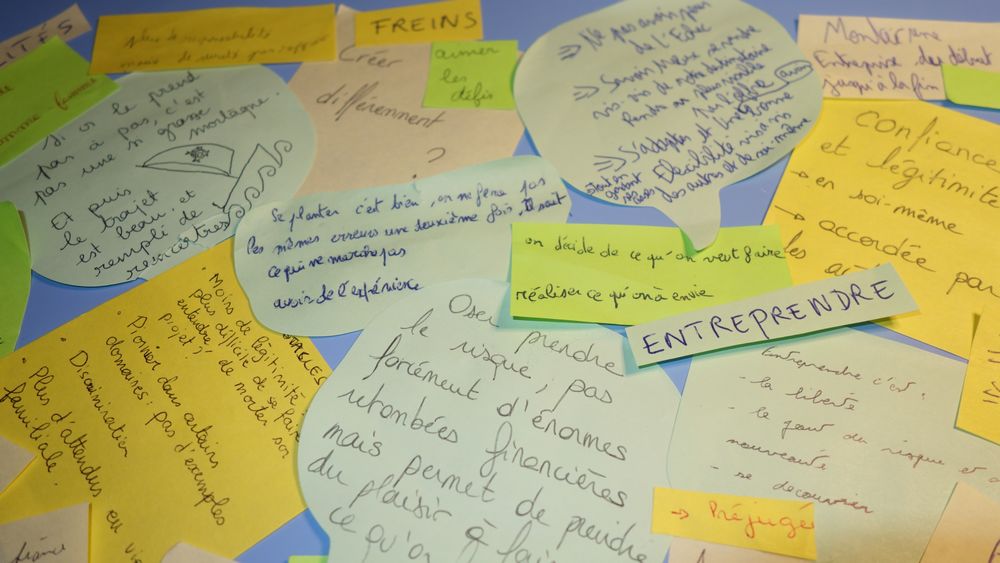 ITÉS
femme
FREINS
Créer
différemment
?
aimer
les
défis
Ne pas avoir peur
de l'Echec
Savoir
vis-vis de
S'adapter et
Flexibilité vis à vis
des autres et de soi-même
Monter une
Entreprise du début
jusqu'à la fin
Confiance
et légitimité
→ en soi-même
→ accordée par
les
Si on le prend
pas à pas, c'est
pas une si grosse
montagne.
Et puis
le trajet
est beau, et
remplé de
rencontres
Se planter c'est bien, on ne fera pas
les mêmes erreurs une deuxième fois, il sait
ce qui ne marche pas
avoir de l'expérience
on décide de ce qu'on veut faire
réaliser ce qu'on à envie
ENTREPRENDRE
TABLES
• Moins de légitimité :
plus difficile de se faire
entendre, de monter son
projet ;
• Pionier dans certains
domaines : pas d'exemples
• Discrimination
• Plus d'attendus en
familiale.
Oser prendre
le risque, pas
forcément d'énormes
retombées financières
mais permet de prendre
du plaisir à
ce qu'on
Entreprendre c'est :
- la liberté
- le gout du risque et
nouveauté
- se decouvrir
→ Préjugé